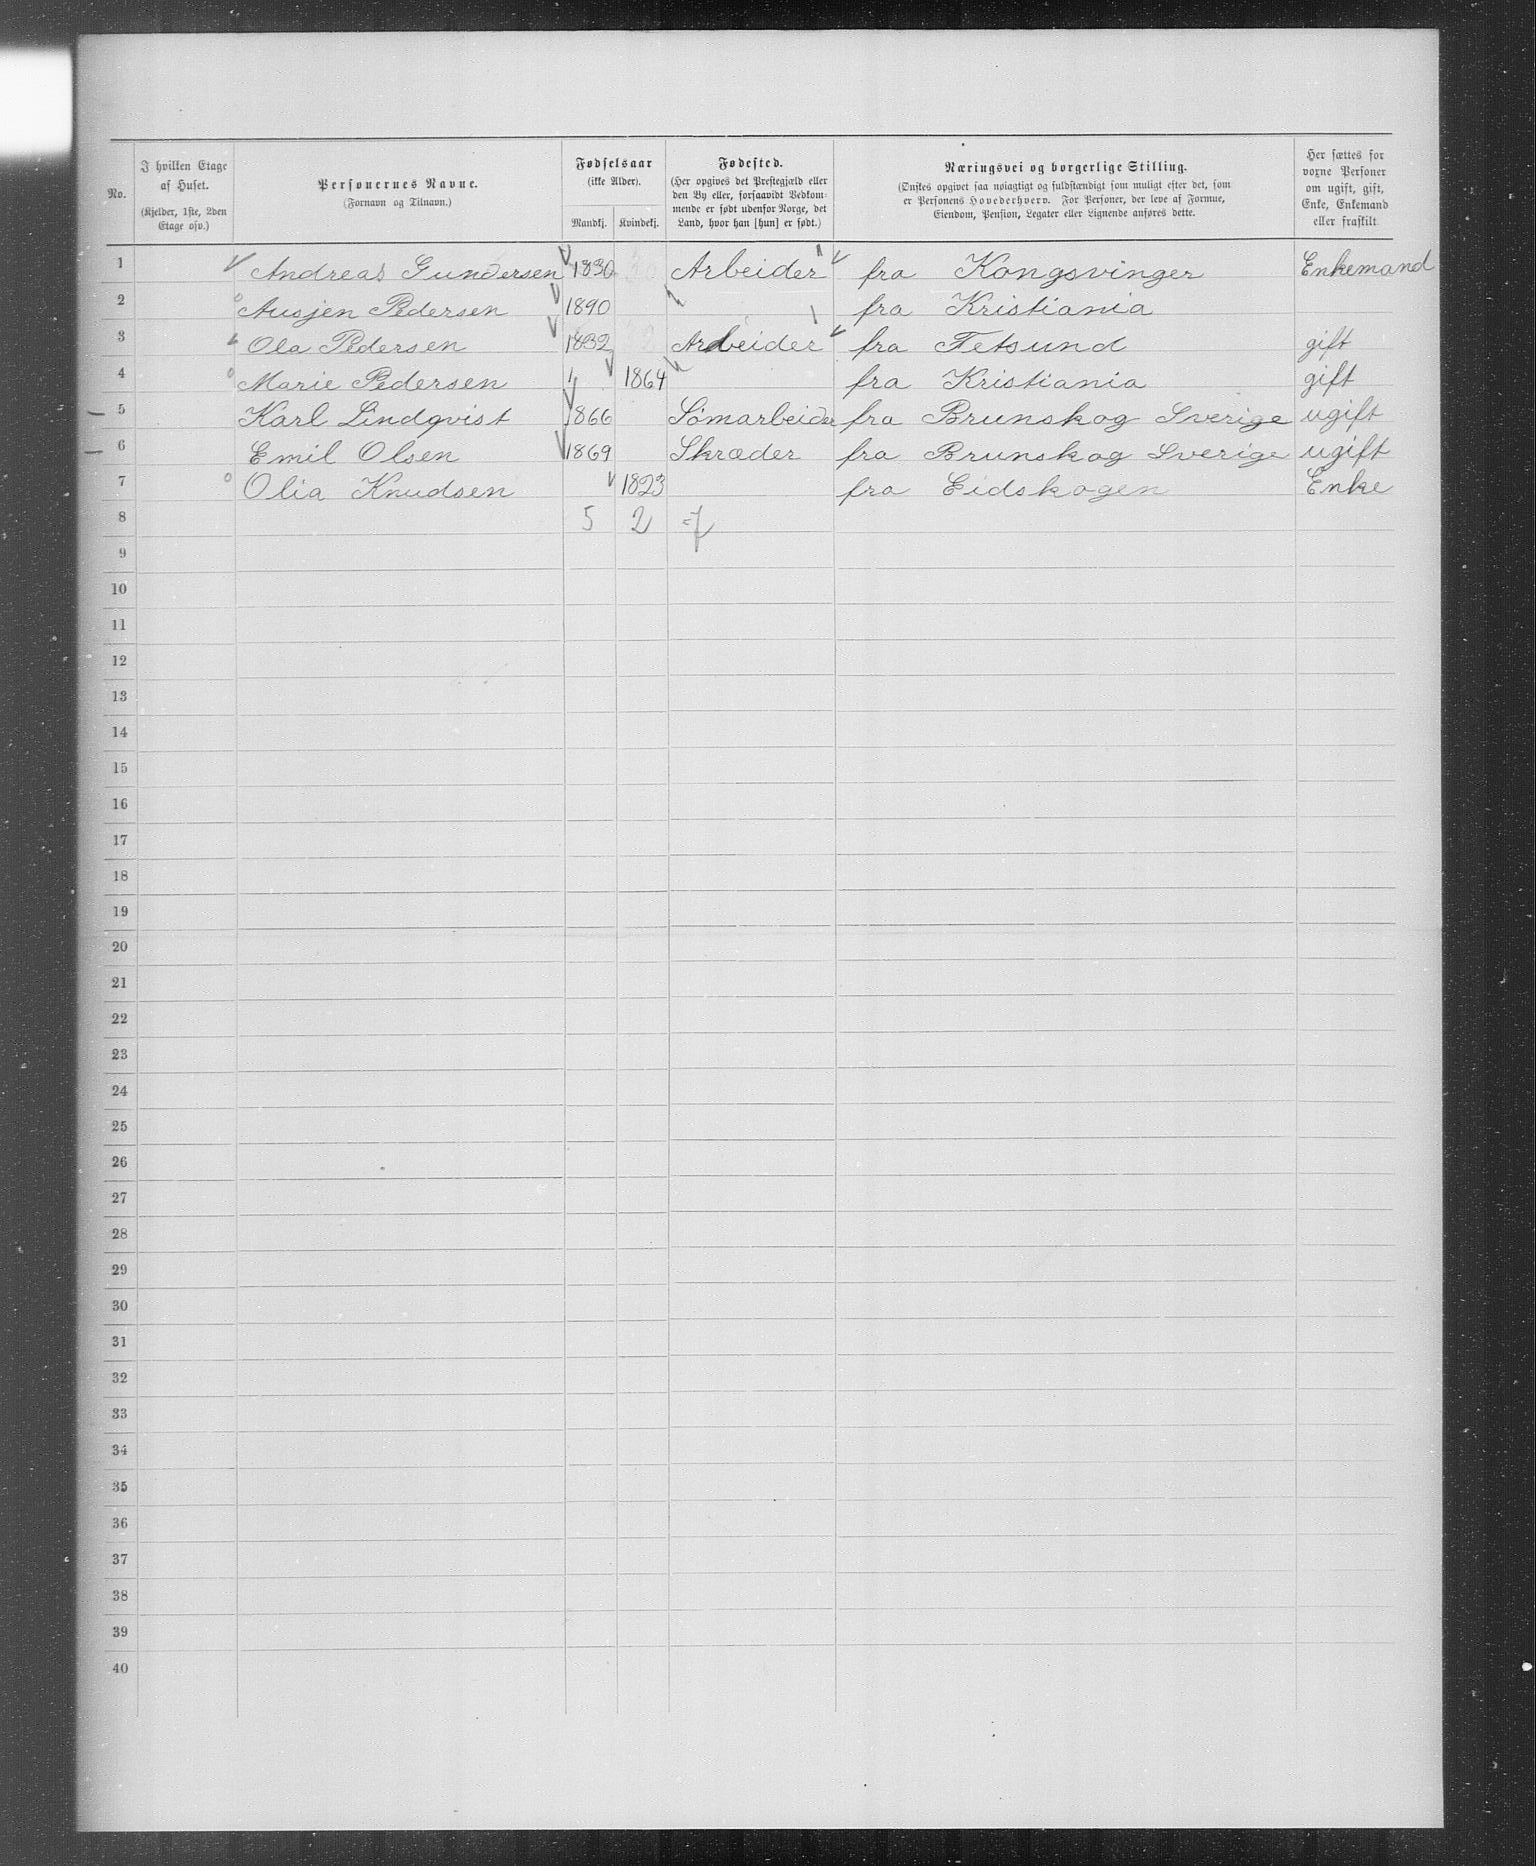 No. | I hvilken Etage af Huset. (Kjelder, 1ste, 2den Etage osv.) | Personernes Navne. (Fornavn og Tilnavn.) | Fødselsaar (ikke Alder). Mandkj. | Kvindekj. | Fødested. (Her opgives det Prestegjæld eller den By eller, forsaavidt Vedkommende er født udenfor Norge, det Land, hvor han [hun] er født.) | Næringsvei og borgerlige Stilling. (Ønskes opgivet saa nøiagtigt og fuldstændigt som muligt efter det, som er Personens Hovederhverv. For Personer, der leve af Formue, Eiendom, Pension, Legater eller Lignende anføres dette.) | Her sættes for voxne Personer om ugift, gift, Enke, Enkemand eller fraskilt.
1 Andreas Gundersen 1830 Arbeider fra Kongsvinger Enkemand
2 Ausjen Pedersen 1890 fra Kristiania
3 Ola Pedersen 1832 Arbeider fra Fetsund gift
4 Marie Pedersen 1864 fra Kristiania gift
5 Karl Lindqvist 1866 Sömarbeider fra Brunskog Sverige ugift
6 Emil Olsen 1869 Skræder fra Brunskog Sverige ugift
7 Olia Knudsen 1823 fra Eidskogen Enke
8 5 2 =7
9
10
11
12
13
14
15
16
17
18
19
20
21
22
23
24
25
26
27
28
29
30
31
32
33
34
35
36
37
38
39
40